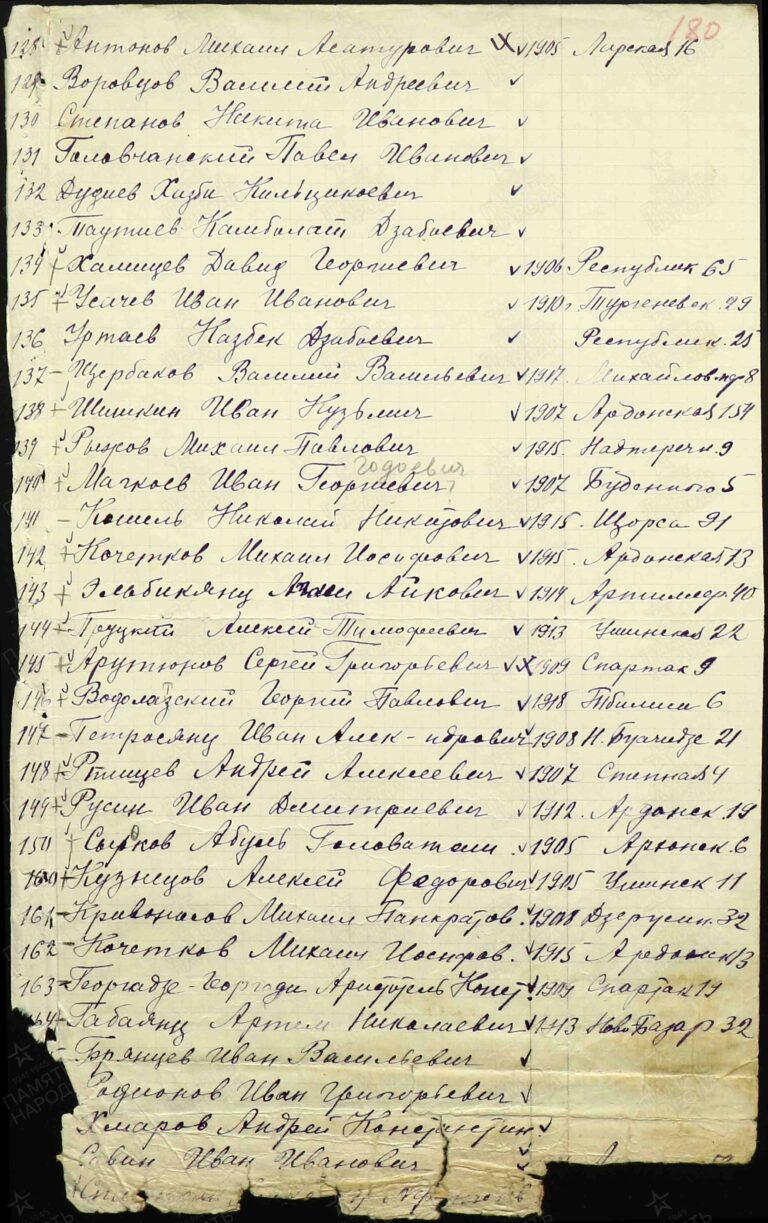 180
128 + Антонов Михаил Асатурович 1905 Ларская 16
129 Воровцов Василий Андреевич
130 Степанов Никита Иванович
131 Головчанский Павел Иванович
132 Дудиев Хазби Кильцикоевич
133 Таутиев Камболат Дзабоевич
134 + Хамицев Давид Георгиевич 1906 Республик 65
135 + Усачев Иван Иванович 1910 г Тургеневск. 29
136 Уртаев Казбек Дзабоевич Республик. 25
137 - Щербаков Василий Васильевич 1917. Михайлов. 8
138 + Шишкин Иван Кузьмич 1907 Ардонская 154
139 + Рыжов Михаил Павлович 1915. Надтеречн. 9
годоевич
140 + Магкоев Иван Георгиевич 1907 Буденного 5
141 - Кошель Николай 1915. Щорса 91
142 + Кочетков Михаил Иосифович 1915. Ардонская 13
143 + Эльбикянц Айкович 1914 Артиллер. 40
144 + Гоуцкий Алексей Тимофеевич 1913 Ушинская 22
145 + Арутюнов Сергей Григорьевич 1909 Спартак 9
146 + Водолазский Георгий Павлович 1918 Тбилиси 6
147 - Петросянц Иван Алек-ндрович 1908 Н. Буачидзе 21
148 + Птицев Андрей Алексеевич 1907 Степная 4
149 + Русин Иван Дмитриевич 1912. Ардонск. 19
150 + Абуль 1905 6
160 + Кузнецов Алексей Федорович 1905 Ушинск 11
161 - Кривоносов Михаил Панкратов. 1908 Дзержин. 32
162 - Кочетков Михаил Иосифов. 1915 Ардонск 13
163 - Георгадзе-Георгади Аристотель Конст. 1909 Спартак 19
164 + Габаянц Артем Николаевич 1913 Ново Базар 32
Брянцев Иван Васильевич
Родионов Иван Григорьевич
Хмаров Андрей Константин.
Савин Иван Иванович